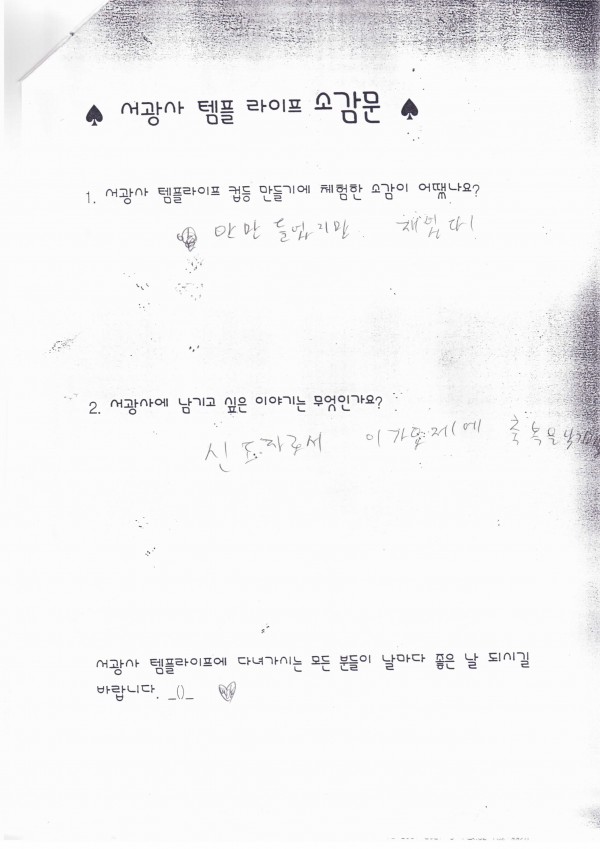 ♠ 서광사 템플 라이프 소감문 ♠
1. 서광사 템플라이프 컵등 만들기에 체험한 소감이 어땠나요?
안만들었지만 재밌다!
2. 서광사에 남기고 싶은 이야기는 무엇인가요?
신도자로서 이가 축복을
서광사 템플라이프에 다녀가시는 모든 분들이 날마다 좋은 날 되시길
바랍니다. _()_